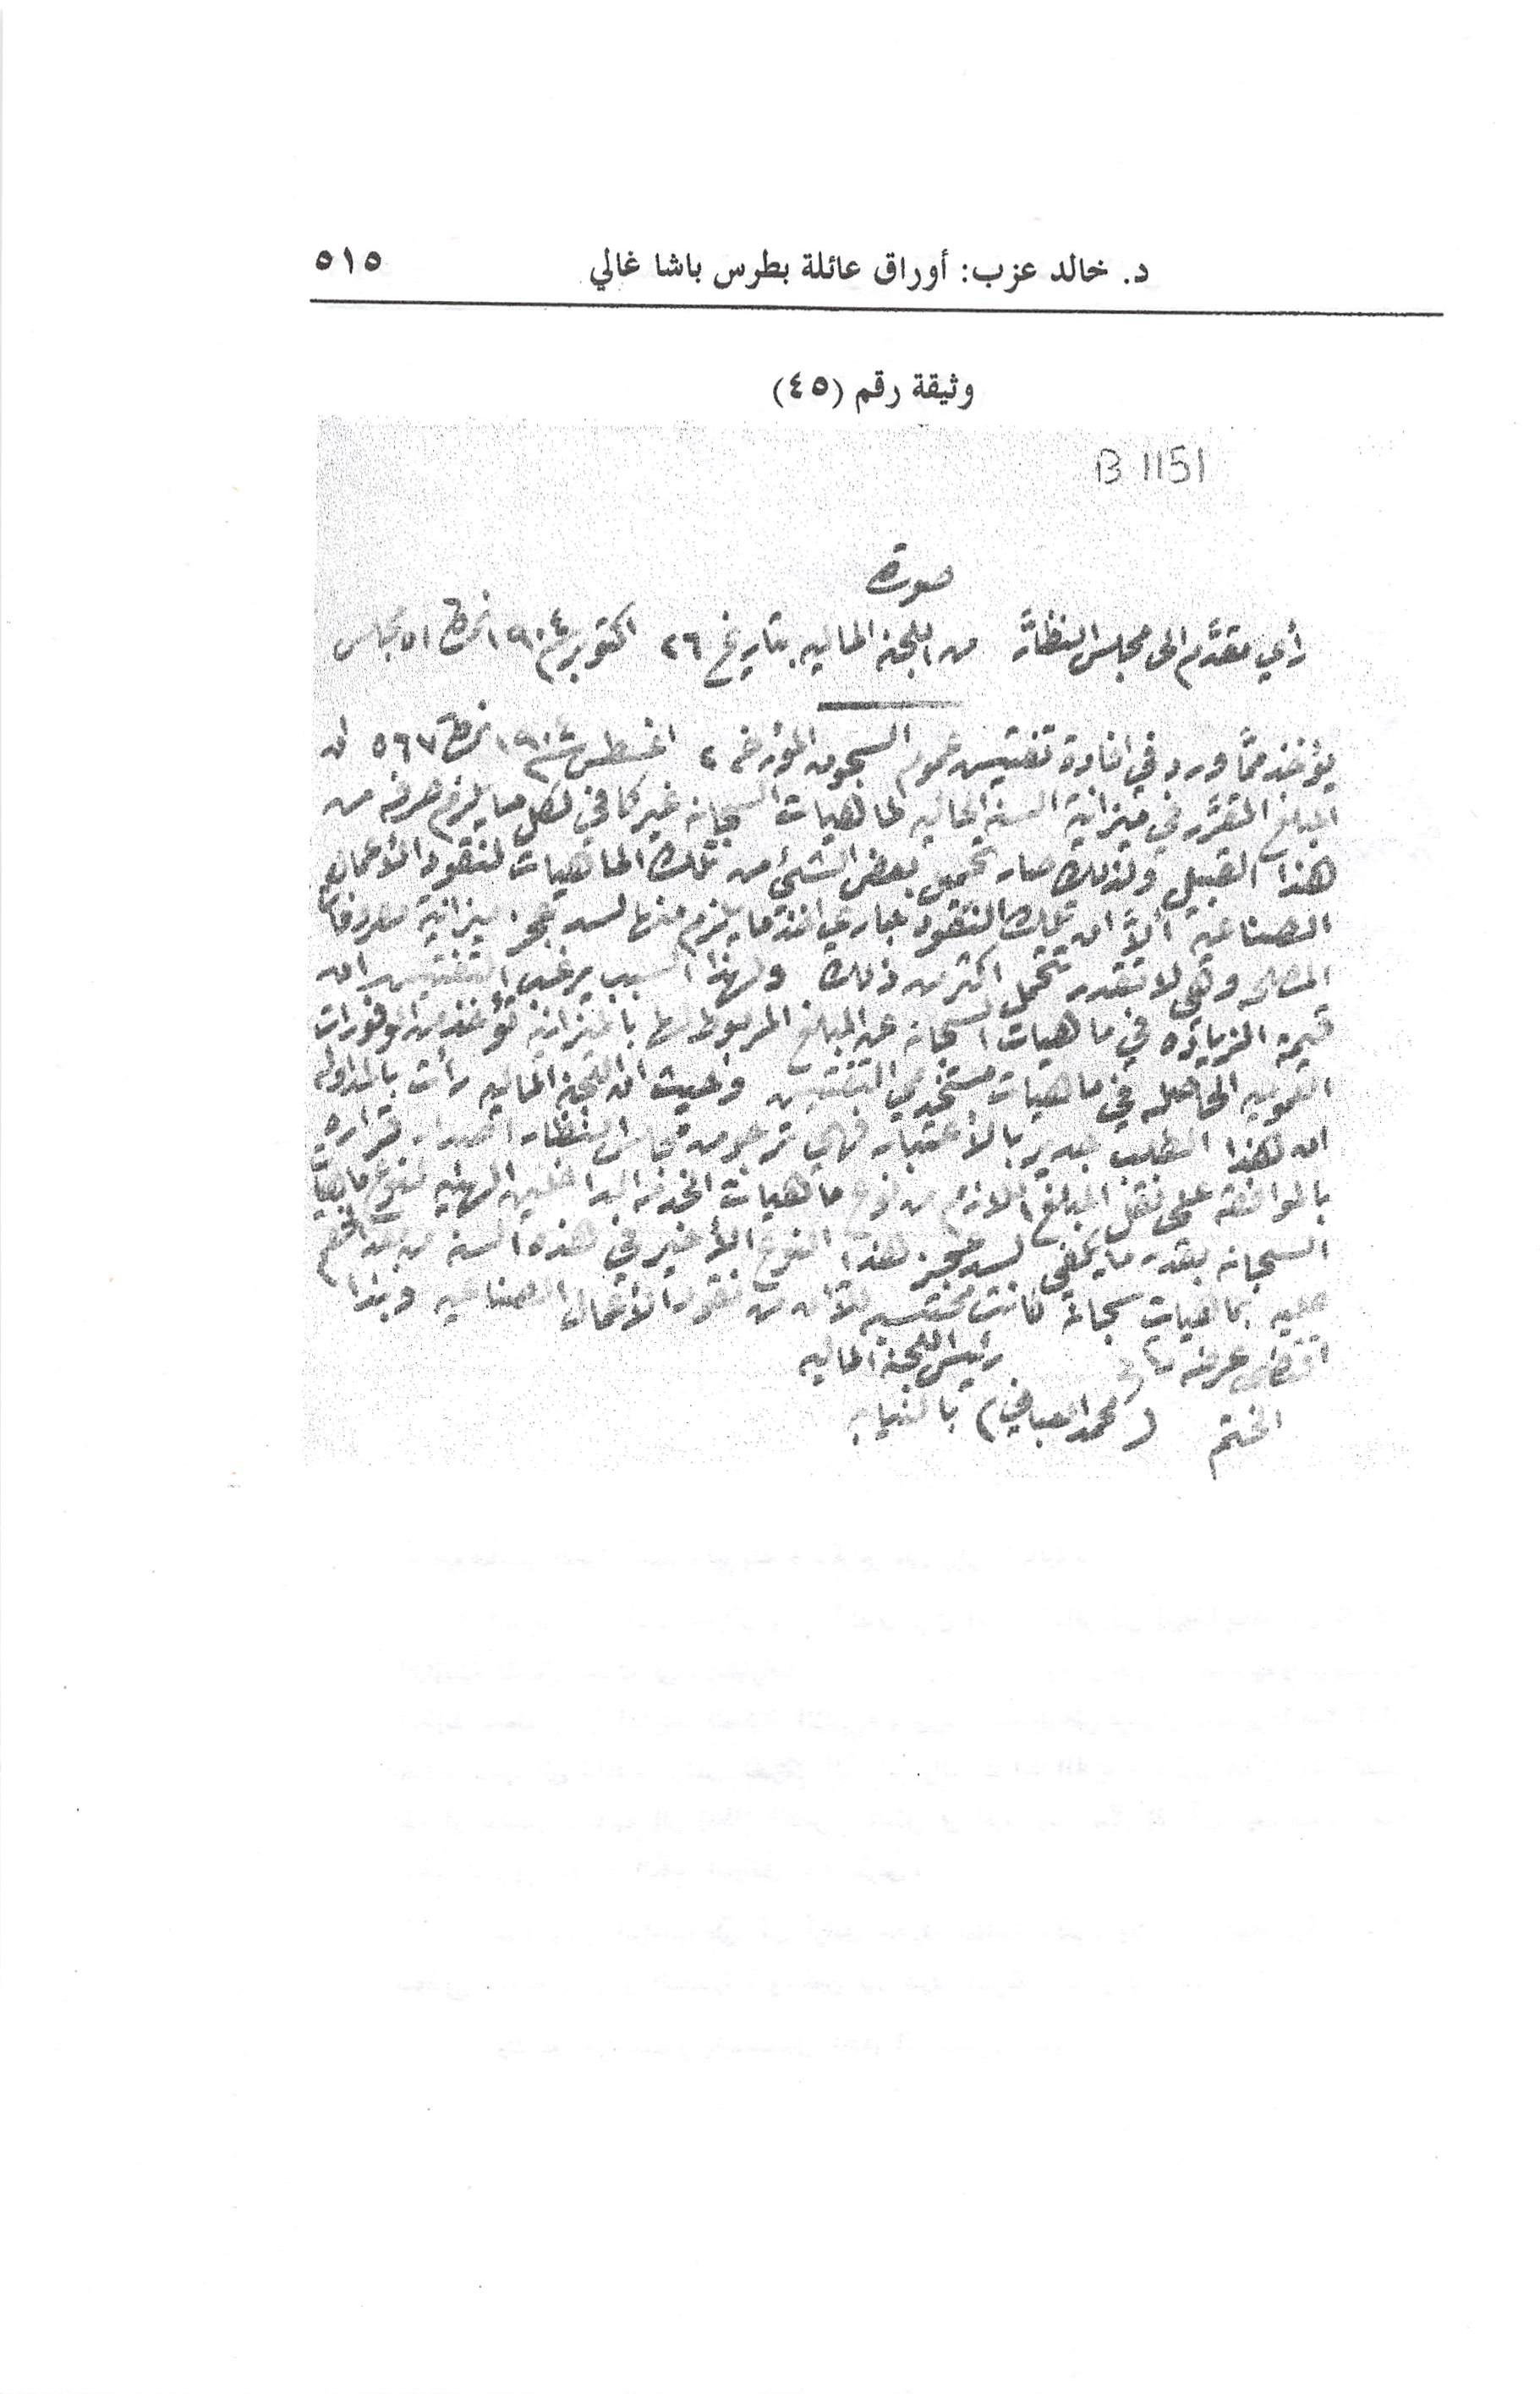 د. خالد عزب: أوراق عائلة بطرس باشا غالي ٥١٥
وثيقة رقم (٤٥)
B 1151
صورة
رأي مقدَّم الى مجلس النظار من اللجنة الماليه بتاريخ ٢٦ اكتوبر ٩٠٤ نمرة ٥١ مجلس
يؤخذ ممَّا ورد في افادة تفتيش عموم السجون المؤرخه ٤ اغسطس نمرة ٥٦٧ ان
المبلغ المقرَّر في ميزانية السنة الحاليه لماهيات السجانه غير كافي لكل ما يلزم صرفه من
هذا القبيل ولذلك صار تحميل بعض الشئ من تلك الماهيات لنقود الأعمال
الصناعية ألاَّ ان تلك النقود جاري اخذ ما يلزم منها لسد عجز ميزانية مصروفات
المصلحه وهي لا تقدر تتحمل اكثر من ذلك ولهذا السبب يرغب التفتيش ان
قيمة الزياده في ماهيات السجانه عن المبلغ المربوط لها بالميزانيه تؤخذ من الوفورات
العموميه الحاصله في ماهيات مستخدمي التفتيش وحيث ان اللجنة الماليه رأت بالمداوله
ان هذا الطلب جدير بالأعتبار فهي ترجو من مجلس النظار اصدار قراره
بالموافقه على نقل المبلغ اللازم من نوع ماهيات الخدمه الداخلين الهيئه لنوع ماهيات
السجانه بقدر ما يكفي لسد عجز هذا الفرع الأخير في هذه السنه من بعد الخصم
عليه بماهيات سجانه كانت محتسبه للآن من نقود الأعمال الصناعيه وبذا
اقتضى عرضه
رئيس اللجنة الماليه
الختم (محمد العباني) بالنيابه